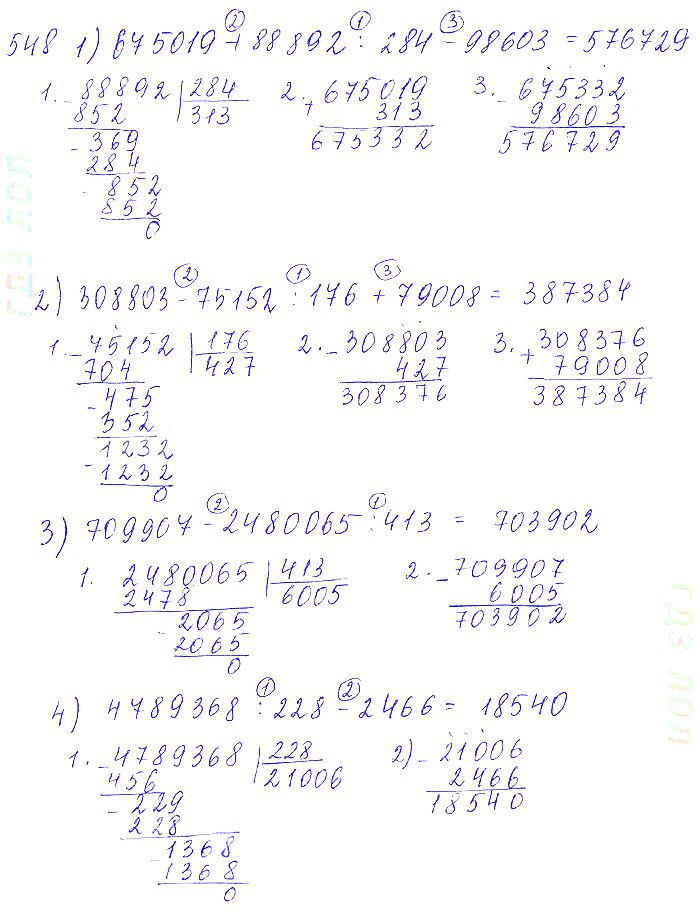 548 1) 675019 + 88892 : 284 - 98603 = 576729
② ① ③
1. - 88892 | 284 2. + 675019 3. - 675332
852 313 313 98603
- 369 675332 576729
284
- 852
852
0
2) 308803 - 75152 : 176 + 79008 = 387384
② ① ③
1. - 75152 | 176 2. - 308803 3. + 308376
704 427 427 79008
- 475 308376 387384
352
- 1232
1232
0
3) 709907 - 2480065 : 413 = 703902
② ①
1. 2480065 | 413 2. - 709907
2478 6005 6005
- 2065 703902
2065
0
4) 4789368 : 228 - 2466 = 18540
① ②
1. - 4789368 | 228 2) - 21006
456 21006 2466
- 229 18540
228
- 1368
1368
0
ГДЗ ЛОЛ
ГДЗ ЛОЛ